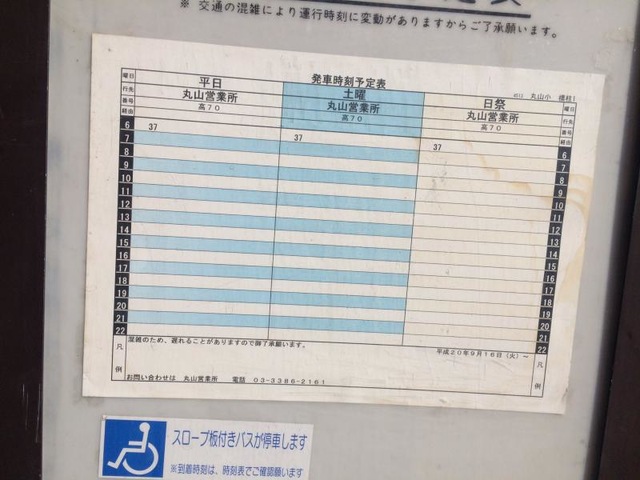 ※ 交通の混雑により運行時刻に変動がありますからご了承願います。
発車時刻予定表
丸山小
曜日 平日 土曜 日祭 曜日
行先 丸山営業所 丸山営業所 丸山営業所 行先
番号 高70 高70 高70 番号
経由 経由
6 37 37 37 6
7 7
8 8
9 9
10 10
11 11
12 12
13 13
14 14
15 15
16 16
17 17
18 18
19 19
20 20
21 21
22 22
凡例 混雑のため、遅れることがありますので御了承願います。 凡例
平成20年9月16日(火)~
お問い合わせは 丸山営業所 電話 03-3386-2161
スロープ板付きバスが停車します
※到着時刻は、時刻表でご確認願います